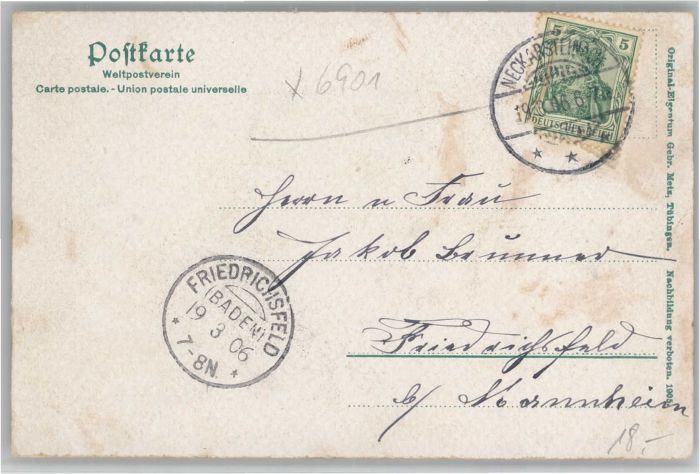 Postkarte
Weltpostverein
Carte postale. - Union postale universelle
x 6901
5 5
DEUTSCHES REICH
NECKARSTEINACH
19.3.06. 6-7
* *
Herrn u Frau
Jakob Brunner
Friedrichsfeld
b/ Mannheim
FRIEDRICHSFELD
(BADEN)
19 3 06
* 7-8N *
Original-Eigentum Gebr. Metz, Tübingen. Nachbildung verboten. 1905.
18.-